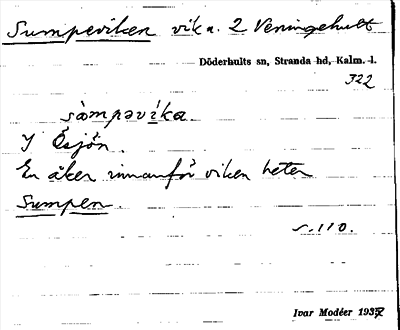 Sumpeviken vik a. 2 Veningehult
Döderhults sn, Stranda hd, Kalm. l.
322
sàmpəvíka.
I Ösjön.
En åker innanför viken heter
Sumpen.
s. 110.
Ivar Modéer 1932